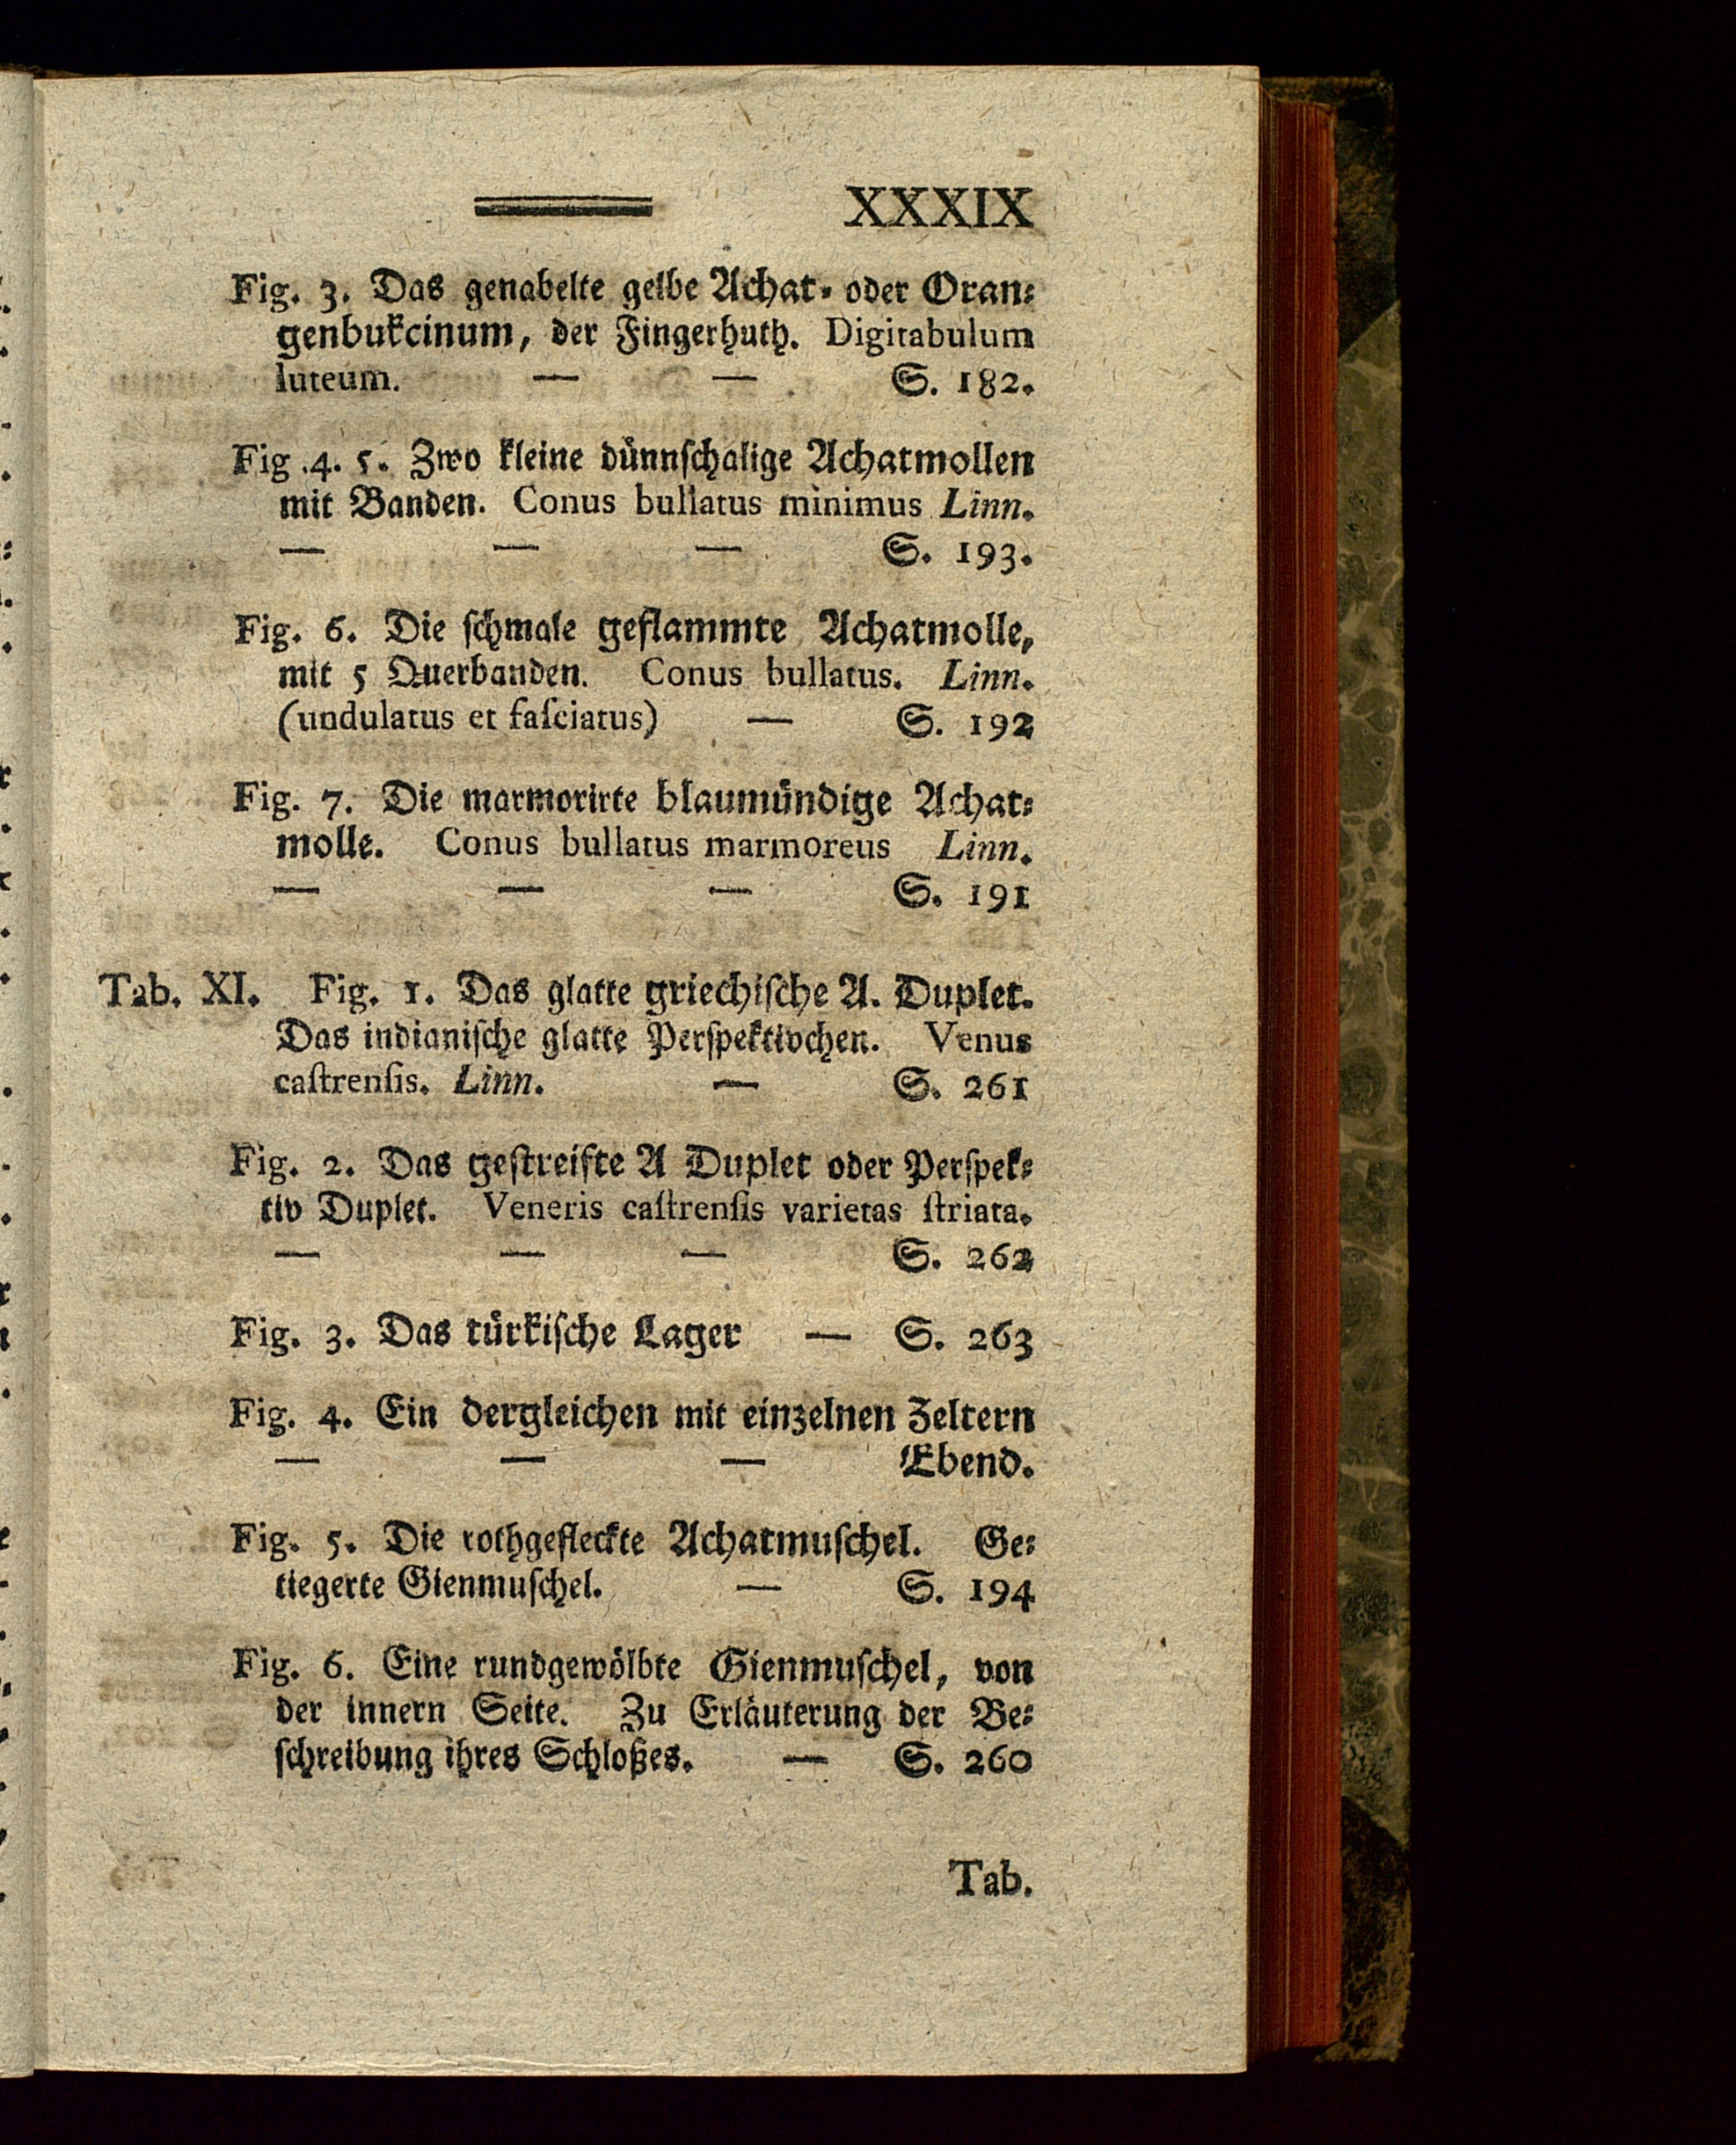 XXXIX
Fig. 3. Das genabelte gelbe Achat- oder Oran-
genbukcinum, der Fingerhuth. Digitabulum
luteum. — — S. 182.
Fig .4. 5. Zwo kleine dünnſchalige Achatmollen
mit Banden. Conus bullatus minimus Linn.
— — — S. 193.
Fig. 6. Die ſchmale geflammte Achatmolle,
mit 5 Querbanden. Conus bullatus. Linn.
(undulatus et faſciatus) — S. 192
Fig. 7. Die marmorirte blaumündige Achat-
molle. Conus bullatus marmoreus Linn.
— — — S. 191
Tab. XI. Fig. 1. Das glatte griechiſche A. Duplet.
Das indianiſche glatte Perſpektivchen. Venus
caſtrenſis. Linn. — S. 261
Fig. 2. Das geſtreifte A Duplet oder Perſpek-
tiv Duplet. Veneris caſtrenſis varietas ſtriata.
— — — S. 262
Fig. 3. Das türkiſche Lager — S. 263
Fig. 4. Ein dergleichen mit einzelnen Zeltern
— — — Ebend.
Fig. 5. Die rothgefleckte Achatmuſchel. Ge-
tiegerte Gienmuſchel. — S. 194
Fig. 6. Eine rundgewölbte Gienmuſchel, von
der innern Seite. Zu Erläuterung der Be-
ſchreibung ihres Schloßes. — S. 260
Tab.